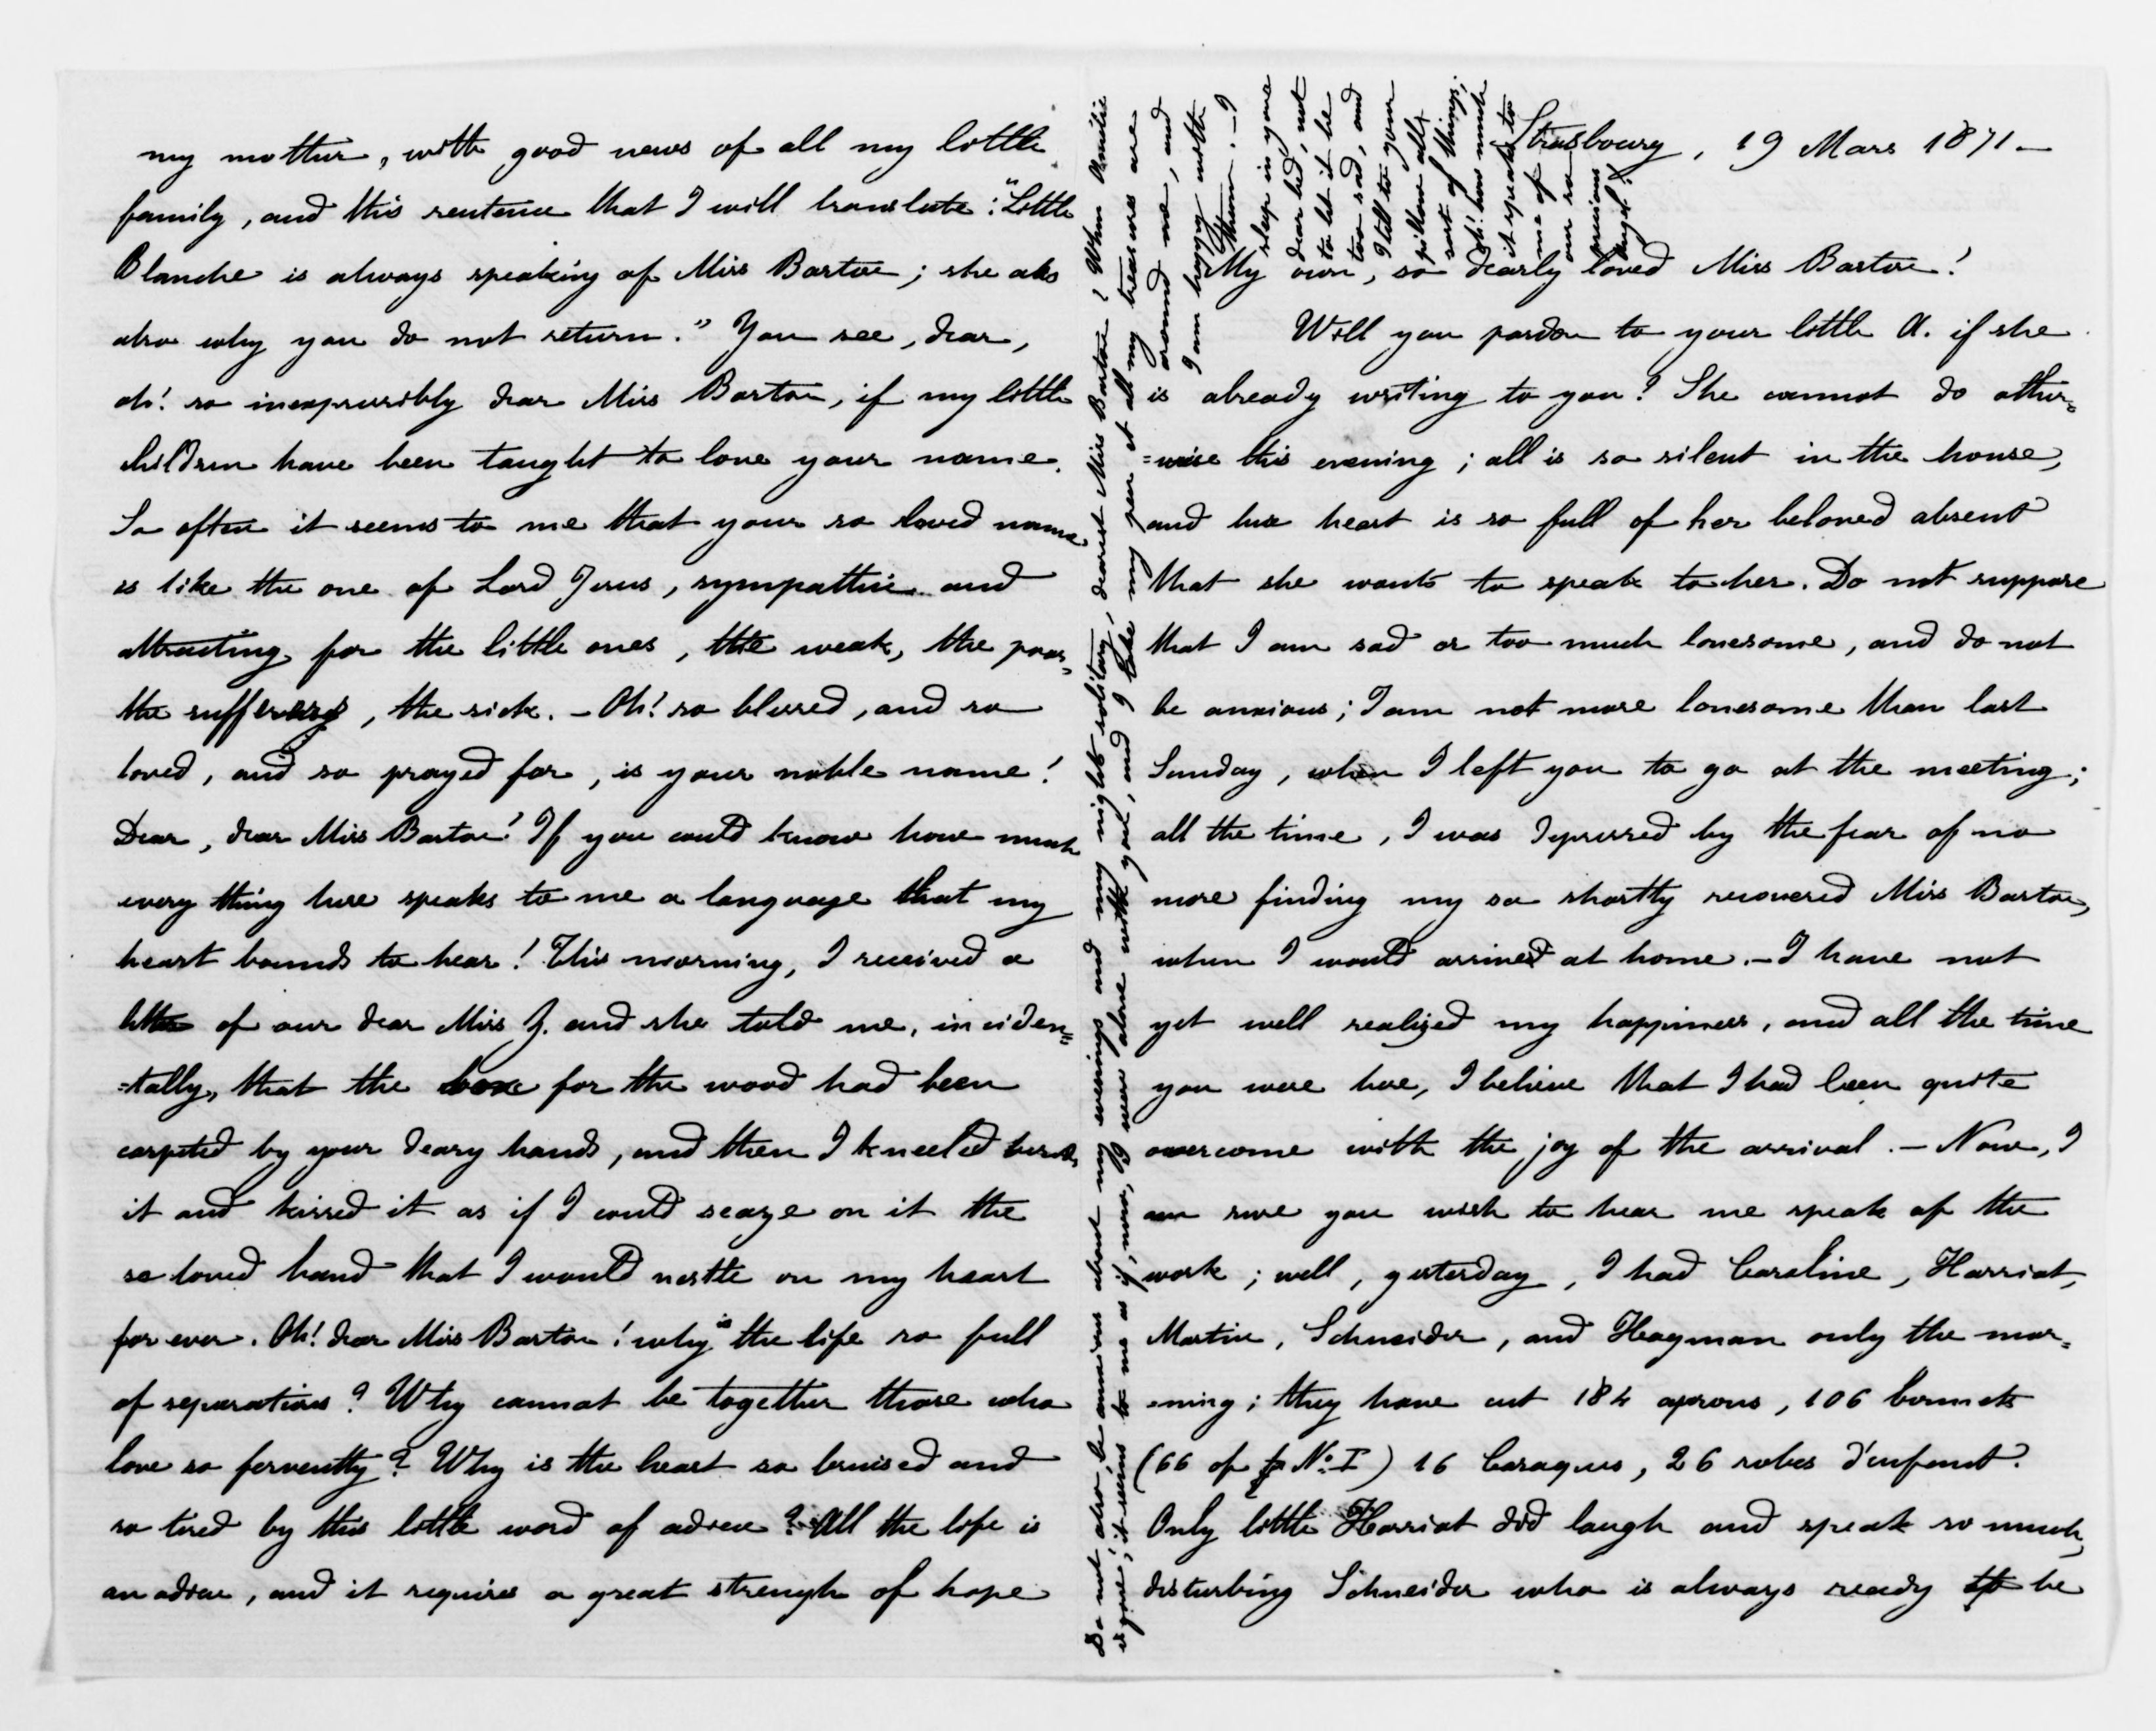 Strasbourg, 19 Mars 1871 —
My own, so dearly loved Miss Barton!
Will you pardon to your little A. if she
is already writing to you? She cannot do other=
=wise this evening; all is so silent in the house,
and her heart is so full of her beloved absent
that she wants to speak to her. Do not suppose
that I am sad or too much lonesome, and do not
be anxious; I am not more lonesome than last
Sunday, when I left you to go at the meeting;
all the time, I was depressed by the fear of no
more finding my so shortly recovered Miss Barton,
when I would arrived at home. — I have not
yet well realized my happiness, and all the time
you were here, I believe that I had been quite
overcome with the joy of the arrival. — Now, I
am sure you wish to hear me speak of the
work; well, yesterday, I had Caroline, Harriat,
Martin, Schneider, and Hagman only the mor=
=ning; they have cut 184 aprons, 106 bonnets
(66 of No. I) 16 Caraques, 26 robes d'enfant.
Only little Harriat did laugh and speak so much,
disturbing Schneider who is always ready to be
my mother, with good news of all my little
family, and this sentence that I will translate: "Little
Blanche is always speaking of Miss Barton; she aks
also why you do not return." You see, dear,
oh! so inexpressibly dear Miss Barton, if my little
children have been taught to love your name.
So often it seems to me that your so loved name
is like the one of Lord Jesus, sympathic and
attracting for the little ones, the weak, the poor,
the sufferers, the sick. — Oh! so blessed, and so
loved, and so prayed for, is your noble name!
Dear, dear Miss Barton! If you could know how much
every thing here speaks to me a language that my
heart bounds to hear! This morning, I received a
letter of our dear Miss Z. and she told me, inciden=
=tally, that the box for the wood had been
carpeted by your deary hands, and then I kneeled beside
it and kissed it as if I could seaze on it the
so loved hand that I would nestle on my heart
for ever. Oh! dear Miss Barton! why is the life so full
of separations? Why cannot be together those who
love so fervently? Why is the heart so bruised and
so tired by this little word of adieu? All the life is
an adieu, and it requires a great strengh of hope
Do not also, be anxious about my evenings and my nights solitary, dearest Miss Barton! When Amélie
is gone, it seems to me as if, now, I were alone with you, and I take my pen et all my treasures are
around me, and
I am happy with
them. —I
sleep in your
dear bed, not
to let it be
too sad, and
I tell to your
pillow all
sort of things;
oh! how much
it speaks to
me of
our so
precious
angel!